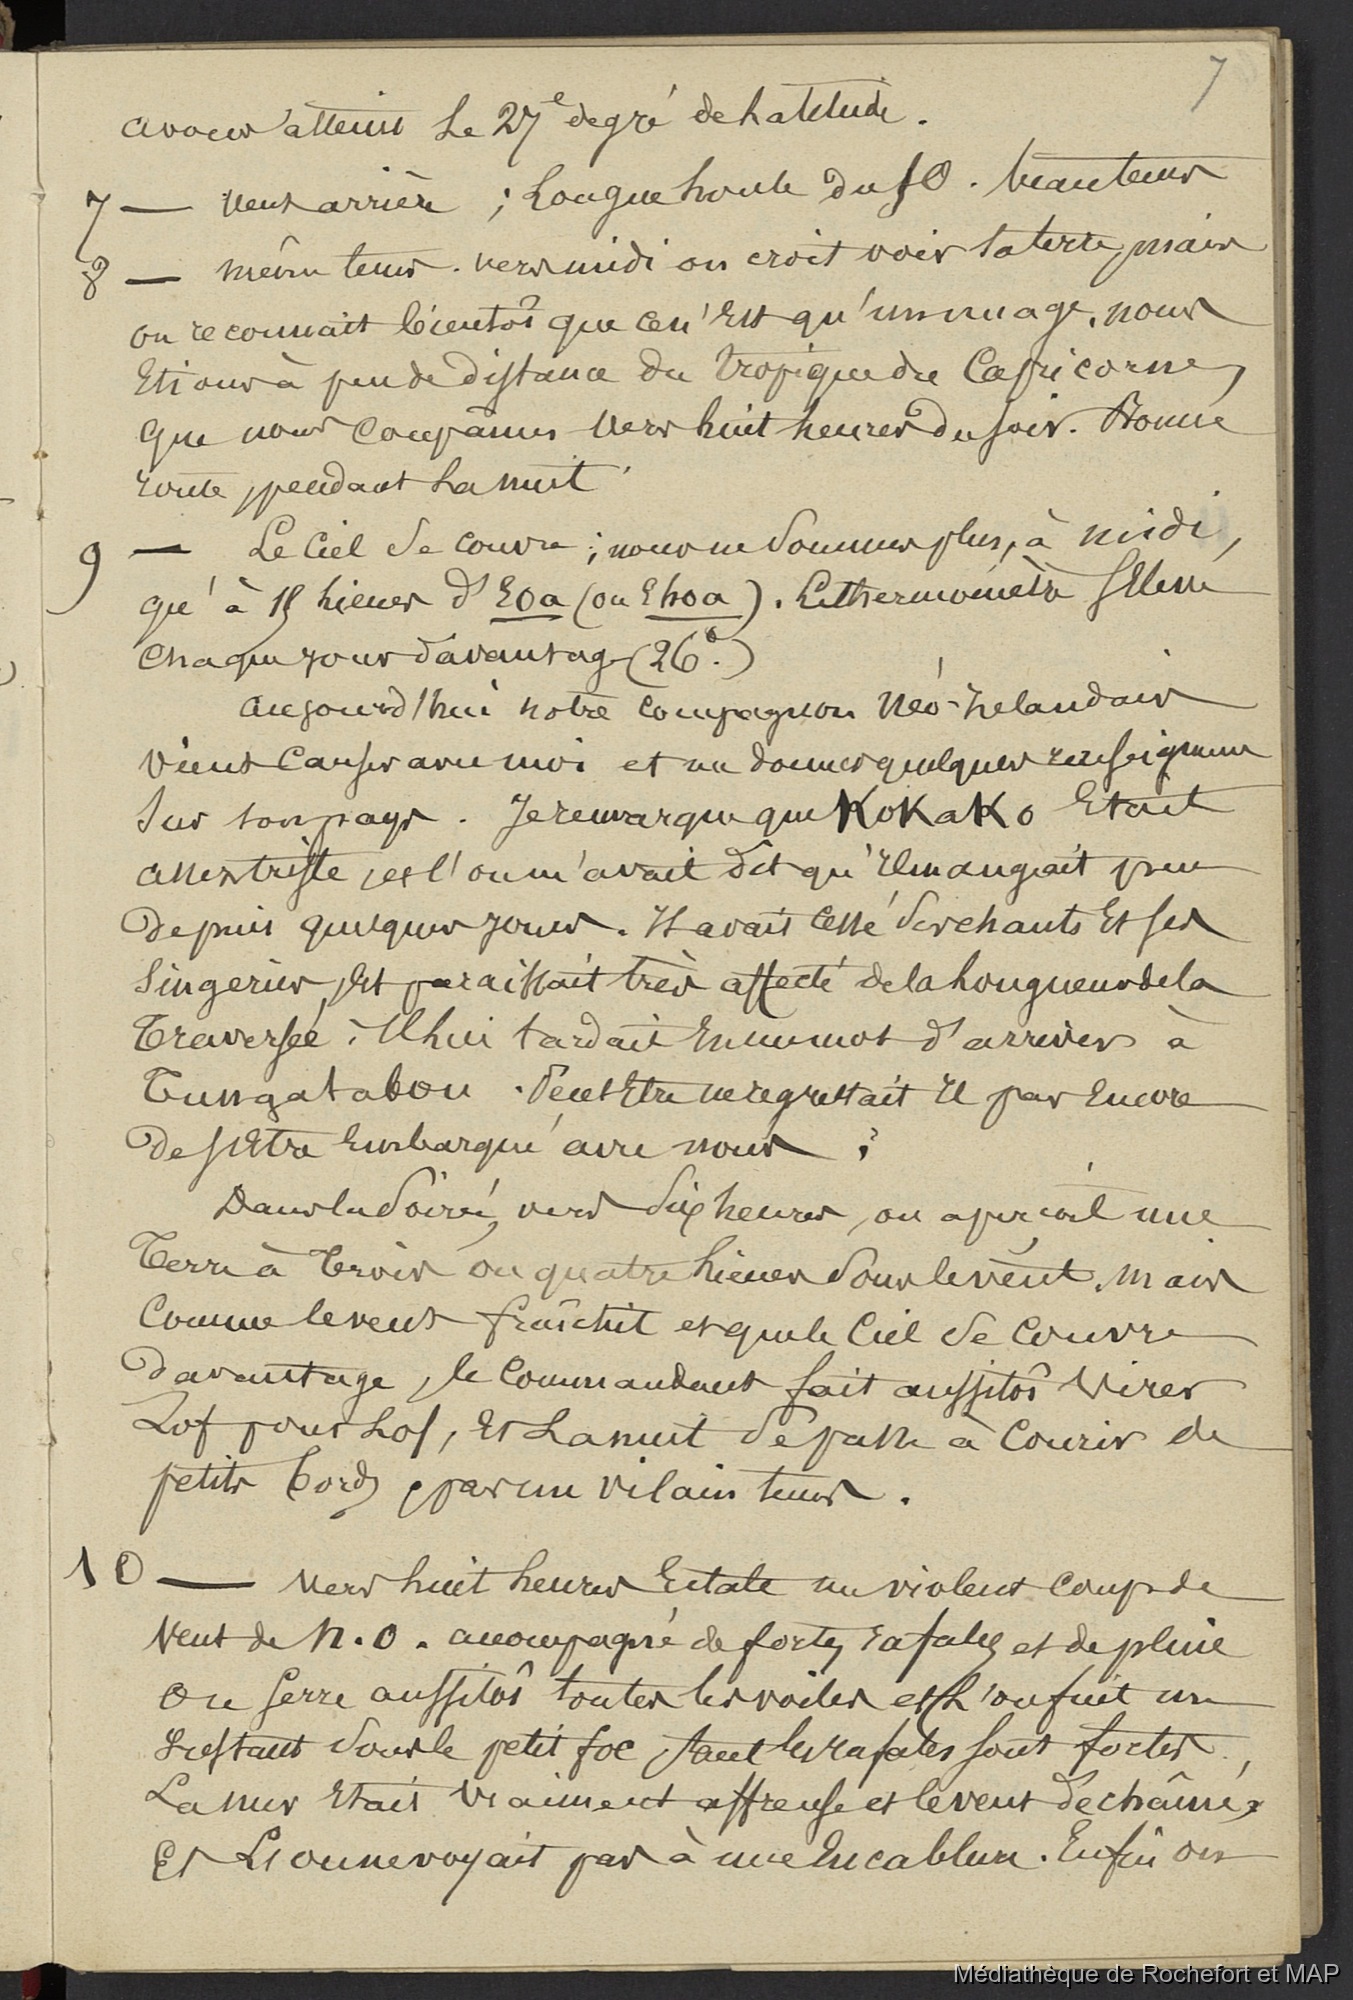 7
avoir atteint le 27e degré de latitude.
7 — Vent arrière ; longue houle du SO. beau tems
8 — même tems. vers midi on croit voir la terre, mais
on reconnait bientôt que ce n'est qu'un nuage. nous
étions à peu de distance du Tropique du Capricorne,
que nous coupâmes vers huit heures du soir. Bonne
route, pendant la nuit
9 — Le Ciel se couvre ; nous ne sommes plus, à midi,
qu'à 15 lieues d'Eoa (ou Ehoa). Le thermomètre s'élève
chaque jour davantage (26°.)
aujourd'hui notre compagnon Néo-Zélandais
vient causer avec moi et me donner quelques renseignemens
sur son pays. Je remarque que Kokako était
assez triste, et l'on m'avait dit qu'il mangeait peu
depuis quelques jours. Il avait cessé ses chants et ses
singeries, et paraissait très affecté de la longueur de la
traversée ; Il lui tardait en un mot d'arriver à
Tungatabou. Peut être ne regrettait il pas encore
de s'être embarqué avec nous ?
Dans la soirée, vers dix heures, on aperçoit une
Terre à trois ou quatre lieues sous le vent. mais
comme le vent fraîchit et que le Ciel se couvre
davantage, le commandant fait aussitôt virer
Lof pour Lof, et la nuit se passe à courir de
petits bords, par un vilain tems.
10 — Vers huit heures éclate un violent coup de
vent de N.O. accompagné de fortes rafales et de pluie
On serre aussitôt toutes les voiles et l'on fuit un
instant sous le petit foc, tant les rafales sont fortes.
La mer était vraiment affreuse et le vent déchaîné,
et l'on ne voyait pas à une encablure. Enfin on
Médiathèque de Rochefort et MAP